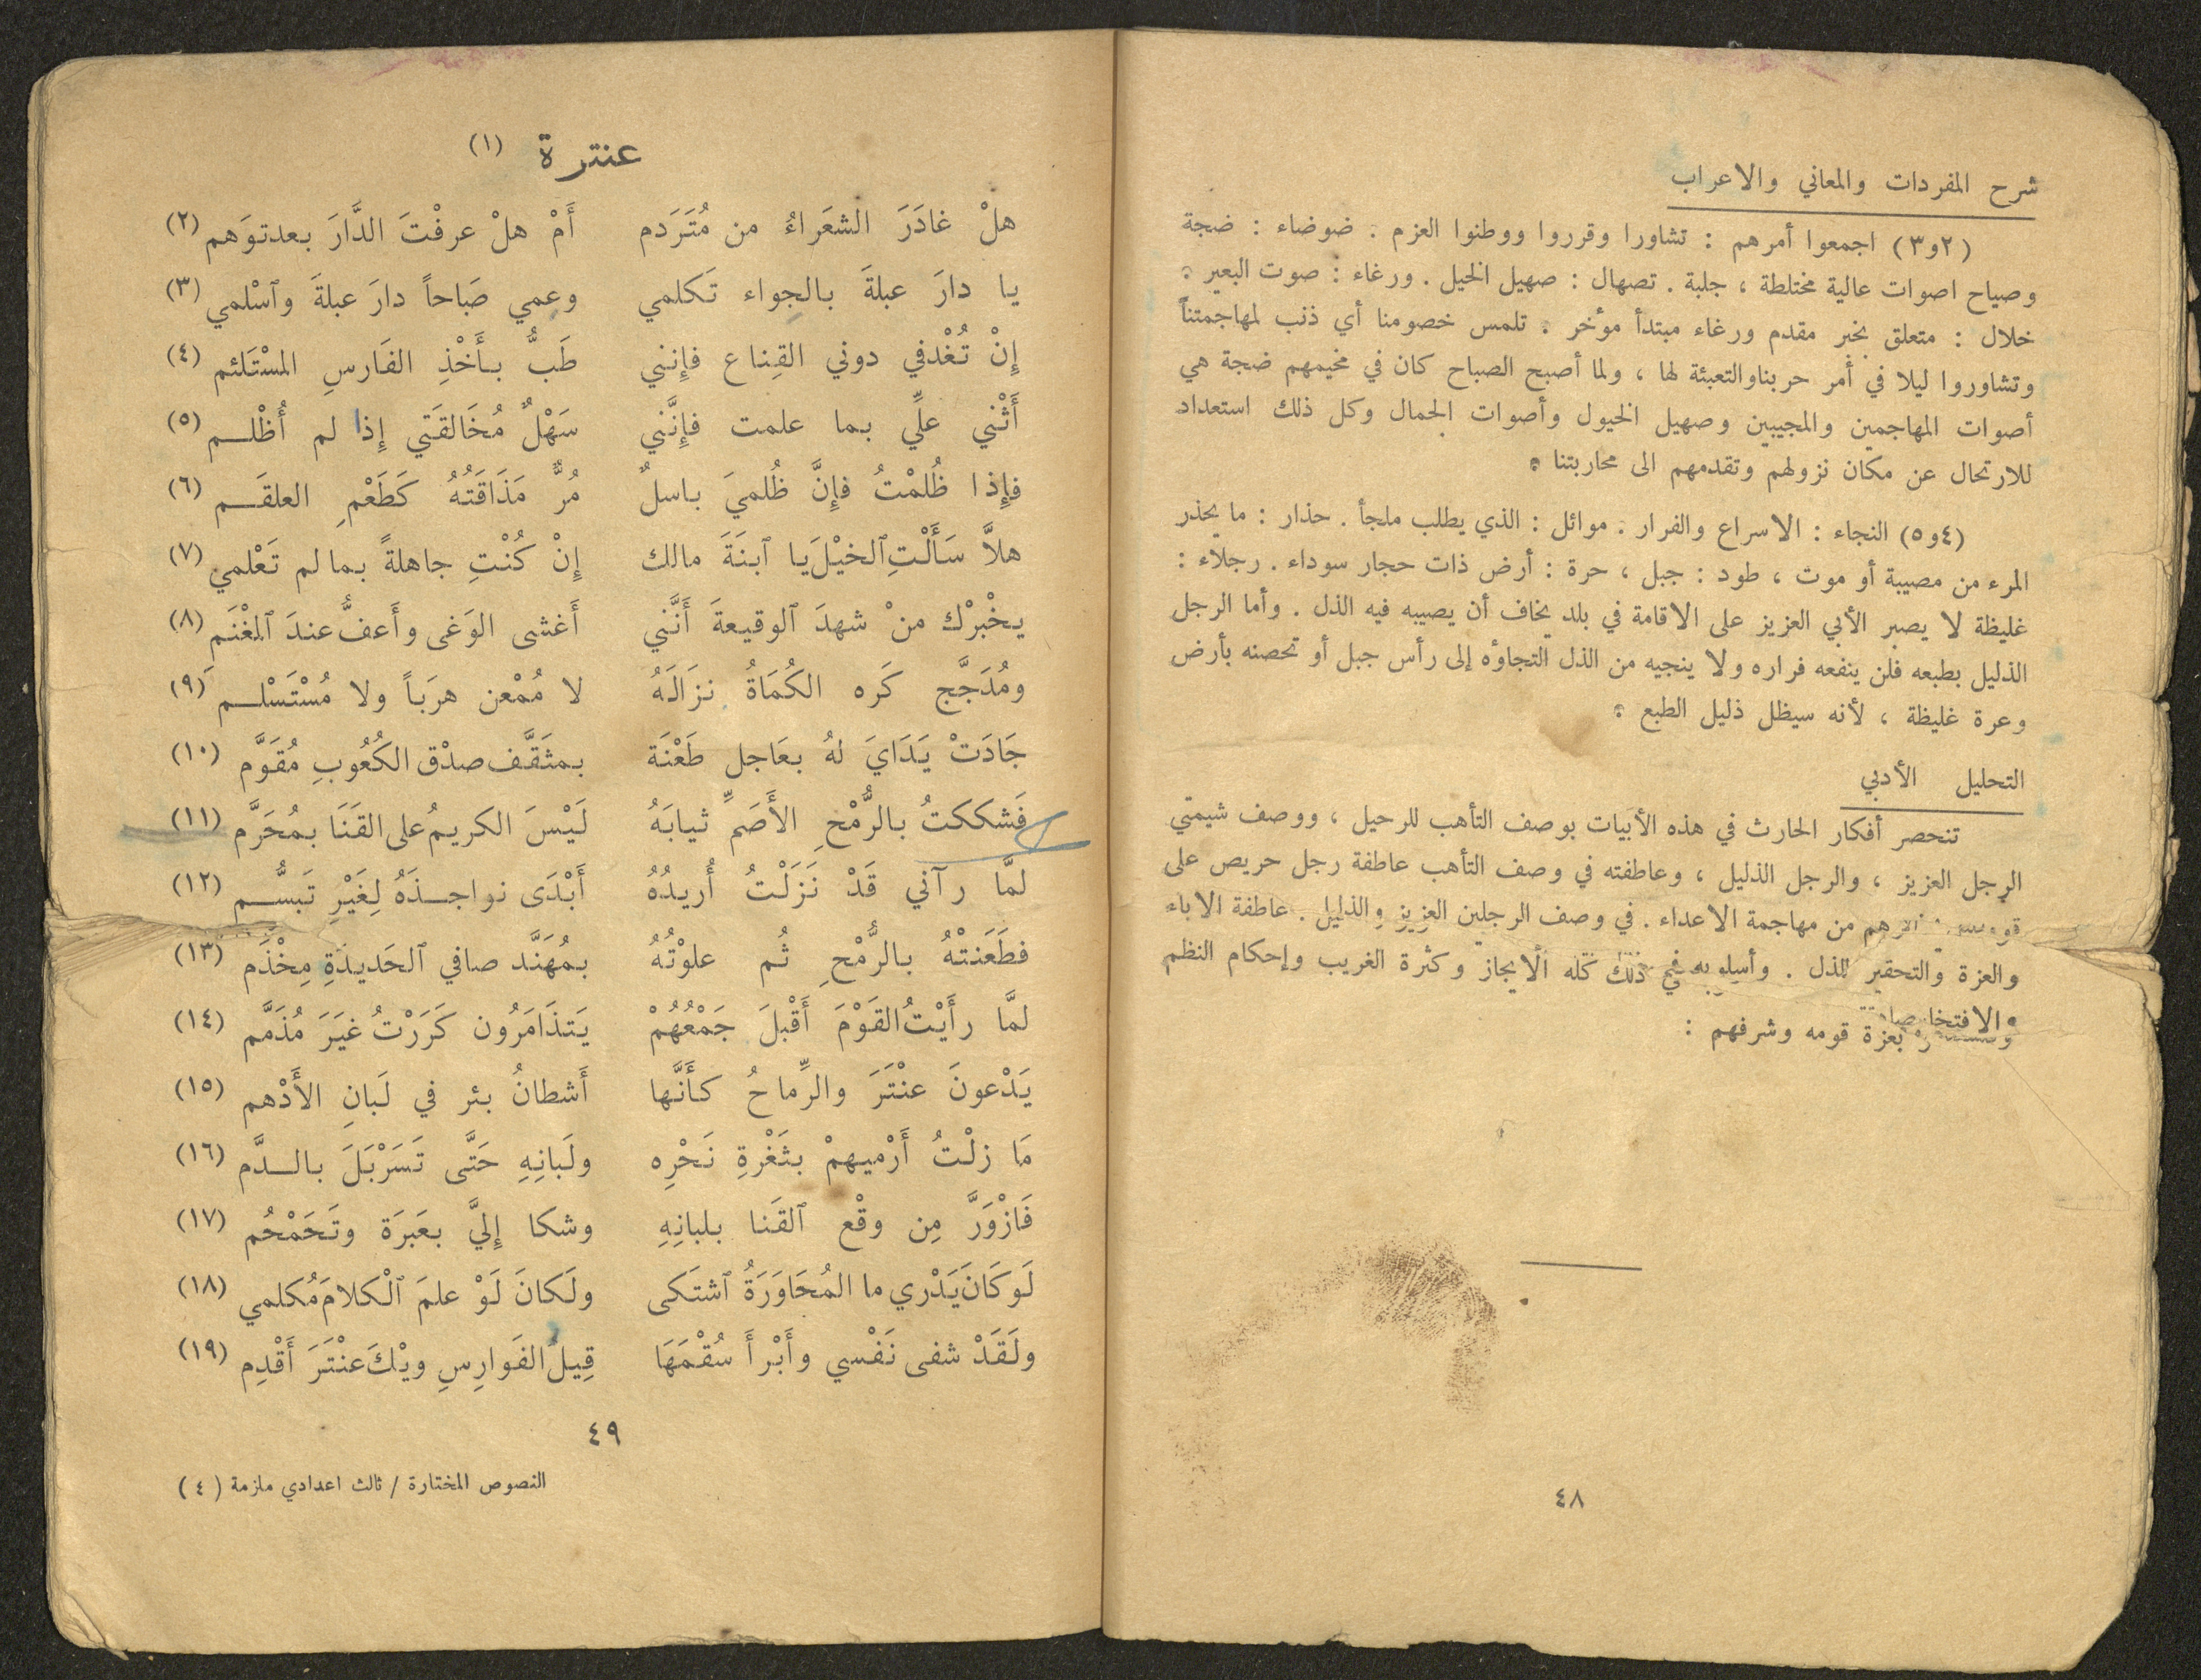 شرح المفردات والمعاني والاعراب
(٢و٣) اجمعوا أمرهم : تشاورا وقرروا ووطنوا العزم . ضوضاء : ضجة
وصياح اصوات عالية مختلطة ، جلبة . تصهال : صهيل الخيل . ورغاء : صوت البعير .
خلال : متعلق بخبر مقدم ورغاء مبتدأ مؤخر . تلمس خصومنا أي ذنب لمهاجمتناً
وتشاوروا ليلا في أمر حربناوالتعبئة لها ، ولما أصبح الصباح كان في مخيمهم ضجة هي
أصوات المهاجمين والمجيبين وصهيل الخيول وأصوات الجمال وكل ذلك استعداد
للارتحال عن مكان نزولهم وتقدمهم الى محاربتنا .
(٤و٥) النجاء : الاسراع والفرار . موائل : الذي يطلب ملجأ . حذار : ما يحذر
المرء من مصيبة أو موت ، طود : جبل ، حرة : أرض ذات حجار سوداء . رجلاء :
غليظة لا يصبر الأبي العزيز على الاقامة في بلد يخاف أن يصيبه فيه الذل . وأما الرجل
الذليل بطبعه فلن ينفعه فراره ولا ينجيه من الذل التجاؤه إلى رأس جبل أو تحصنه بأرض
وعرة غليظة ، لأنه سيظل ذليل الطبع .
التحليل الأدبي
تنحصر أفكار الحارث في هذه الأبيات بوصف التأهب للرحيل ، ووصف شيمتي
الرجل العزيز ، والرجل الذليل ، وعاطفته في وصف التأهب عاطفة رجل حريص على
من مهاجمة الاعداء . في وصف الرجلين العزيز والذليل . عاطفة الاباء
والعزة والتحقير للذل . وأسلوبه في ذلك كله الايجاز وكثرة الغريب وإحكام النظم
والافتخار بعزة قومه وشرفهم :
٤٨
عنترة (١)
هلْ غادَرَ الشعَراءُ من مُتَرَدم أَمْ هلْ عرفْتَ الدَّارَ بعدتوَهم (٢)
يا دارَ عبلةَ بالجواء تَكلمي وعمي صَباحاً دارَ عبلةَ وٱسْلمي (٣)
إِنْ تُغْدفي دوني القِناع فإِنني طَبٌّ بأَخْذِ الفَارسِ المسْتَلئم (٤)
أَثْني علِّي بما علمت فإِنَّني سَهْلٌ مُخَالقَتي إِذا لم أُظْلـم (٥)
فإِذا ظُلمْتُ فإِنَّ ظُلميَ باسلٌ مُرٌّ مَذَاقَتُهُ كَطَعْمِ العلقَـم (٦)
هلاَّ سَأَلْتِٱلخيْلَيا ٱبنَةَ مالك إِنْ كُنْتِ جاهلةً بمالم تَعْلمي (٧)
يخْبرْك منْ شهدَ ٱلوقيعةَ أَنَّني أَغشى الوَغى وأَعفُّ عندَ ٱلمغْنَم (٨)
ومُدَجَّج كَره الكُمَاةُ نزَالَهُ لا مُمْعن هرَباً ولا مُسْتَسْلـم (٩)
جَادَتْ يَدَايَ لهُ بعَاجل طَعْنَة بمثَقَّف صدْق الكُعُوبِ مُقوَّم (١٠)
فَشككتُ بالرُّمْحِ الأَصَمِّ ثيابَهُ لَيْسَ الكريمُ على القَنَا بمُحَرَّم (١١)
لمَّا رآني قَدْ نَزَلْتُ أُريدُهُ أَبْدَى نواجـذَهُ لِغَيْرِ تَبسُّـم (١٢)
فطَعَنتْهُ بالرُّمْحِ ثُم علوْتُهُ بمُهَنَّد صافي ٱلحَديدَةِ مِخْذَم (١٣)
لمَّا رأَيْتُ القَوْمَ أَقْبلَ جَمْعُهُمْ يَتذَامَرُون كَرَرْتُ غيَرَ مُذَمَّم (١٤)
يَدْعونَ عنْتَرَ والرِّماحُ كأَنَّها أَشطانُ بئر في لَبانِ الأَدْهم (١٥)
مَا زلْتُ أَرْميهمْ بثَغْرةِ نَحْرِه ولَبانِهِ حَتَّى تَسَرْبَلَ بالـدَّم (١٦)
فَازْوَرَّ مِن وقْع ٱلقَنا بلبانِهِ وشكا إِليَّ بعَبرَة وتَحَمْحُم (١٧)
لَوكَانَيَدْري ما المُحَاوَرَةُ ٱشتَكى ولَكانَ لَوْ علمَ ٱلْكلامَمُكلمي (١٨)
ولَقَدْ شفى نَفْسي وأَبْرأَ سُقْمَهَا قِيلُ الفَوارِسِ ويْكَ عنْتَرَ أَقْدِم (١٩)
٤٩
النصوص المختارة / ثالث اعدادي ملزمة (٤)